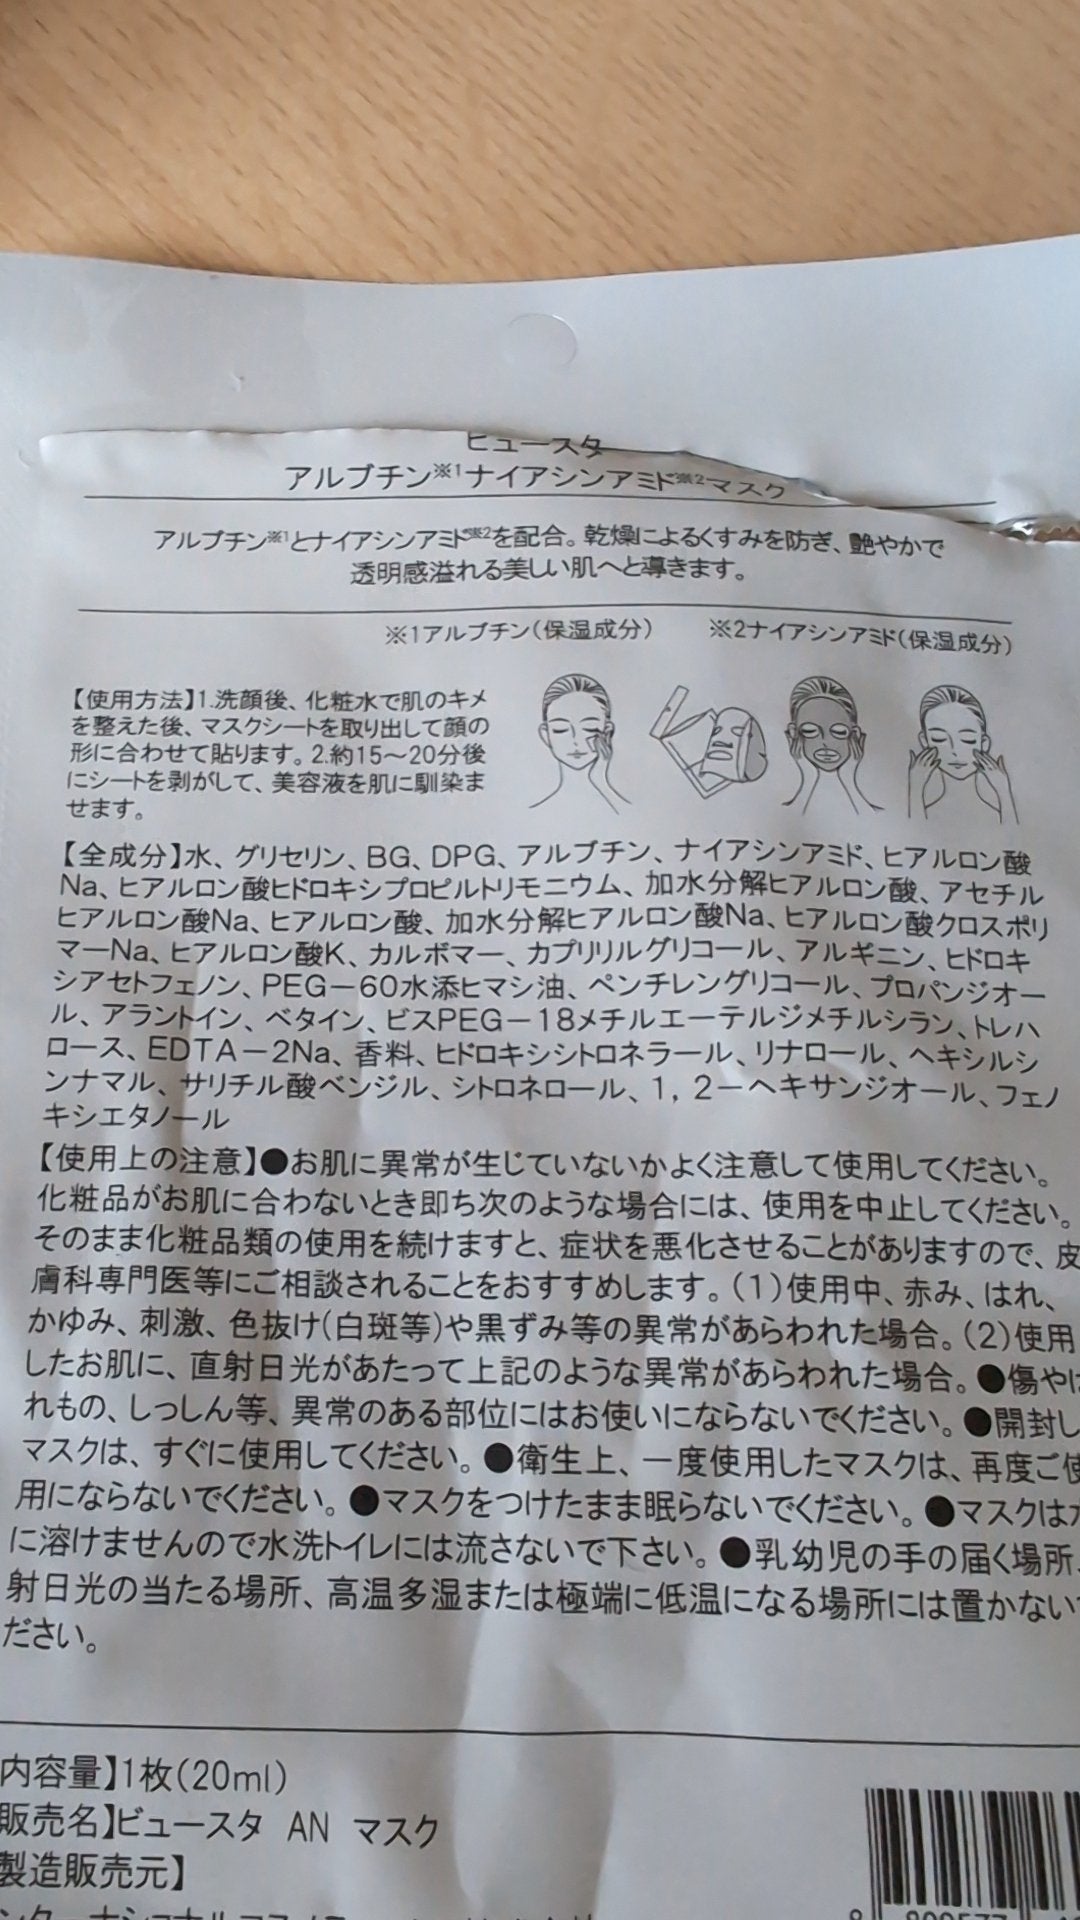 ビュースタ
アルブチン※1ナイアシンアミド※2マスク
アルブチン※1とナイアシンアミド※2を配合。乾燥によるくすみを防ぎ、艶やかで
透明感溢れる美しい肌へと導きます。
※1アルブチン(保湿成分) ※2ナイアシンアミド(保湿成分)
【使用方法】1.洗顔後、化粧水で肌のキメ
を整えた後、マスクシートを取り出して顔の
形に合わせて貼ります。2.約15～20分後
にシートを剥がして、美容液を肌に馴染ま
せます。
【全成分】水、グリセリン、BG、DPG、アルブチン、ナイアシンアミド、ヒアルロン酸
Na、ヒアルロン酸ヒドロキシプロピルトリモニウム、加水分解ヒアルロン酸、アセチル
ヒアルロン酸Na、ヒアルロン酸、加水分解ヒアルロン酸Na、ヒアルロン酸クロスポリ
マーNa、ヒアルロン酸K、カルボマー、カプリリルグリコール、アルギニン、ヒドロキ
シアセトフェノン、PEG－60水添ヒマシ油、ペンチレングリコール、プロパンジオー
ル、アラントイン、ベタイン、ビスPEG－18メチルエーテルジメチルシラン、トレハ
ロース、EDTA－2Na、香料、ヒドロキシシトロネラール、リナロール、ヘキシルシ
ンナマル、サリチル酸ベンジル、シトロネロール、1，2－ヘキサンジオール、フェノ
キシエタノール
【使用上の注意】●お肌に異常が生じていないかよく注意して使用してください。
化粧品がお肌に合わないとき即ち次のような場合には、使用を中止してください。
そのまま化粧品類の使用を続けますと、症状を悪化させることがありますので、皮
膚科専門医等にご相談されることをおすすめします。(1)使用中、赤み、はれ、
かゆみ、刺激、色抜け(白斑等)や黒ずみ等の異常があらわれた場合。(2)使用
したお肌に、直射日光があたって上記のような異常があらわれた場合。●傷やは
れもの、しっしん等、異常のある部位にはお使いにならないでください。●開封し
マスクは、すぐに使用してください。●衛生上、一度使用したマスクは、再度ご使
用にならないでください。●マスクをつけたまま眠らないでください。●マスクは水
に溶けませんので水洗トイレには流さないで下さい。●乳幼児の手の届く場所、
射日光の当たる場所、高温多湿または極端に低温になる場所には置かない
ださい。
内容量】1枚(20ml)
販売名】ビュースタ AN マスク
製造販売元】